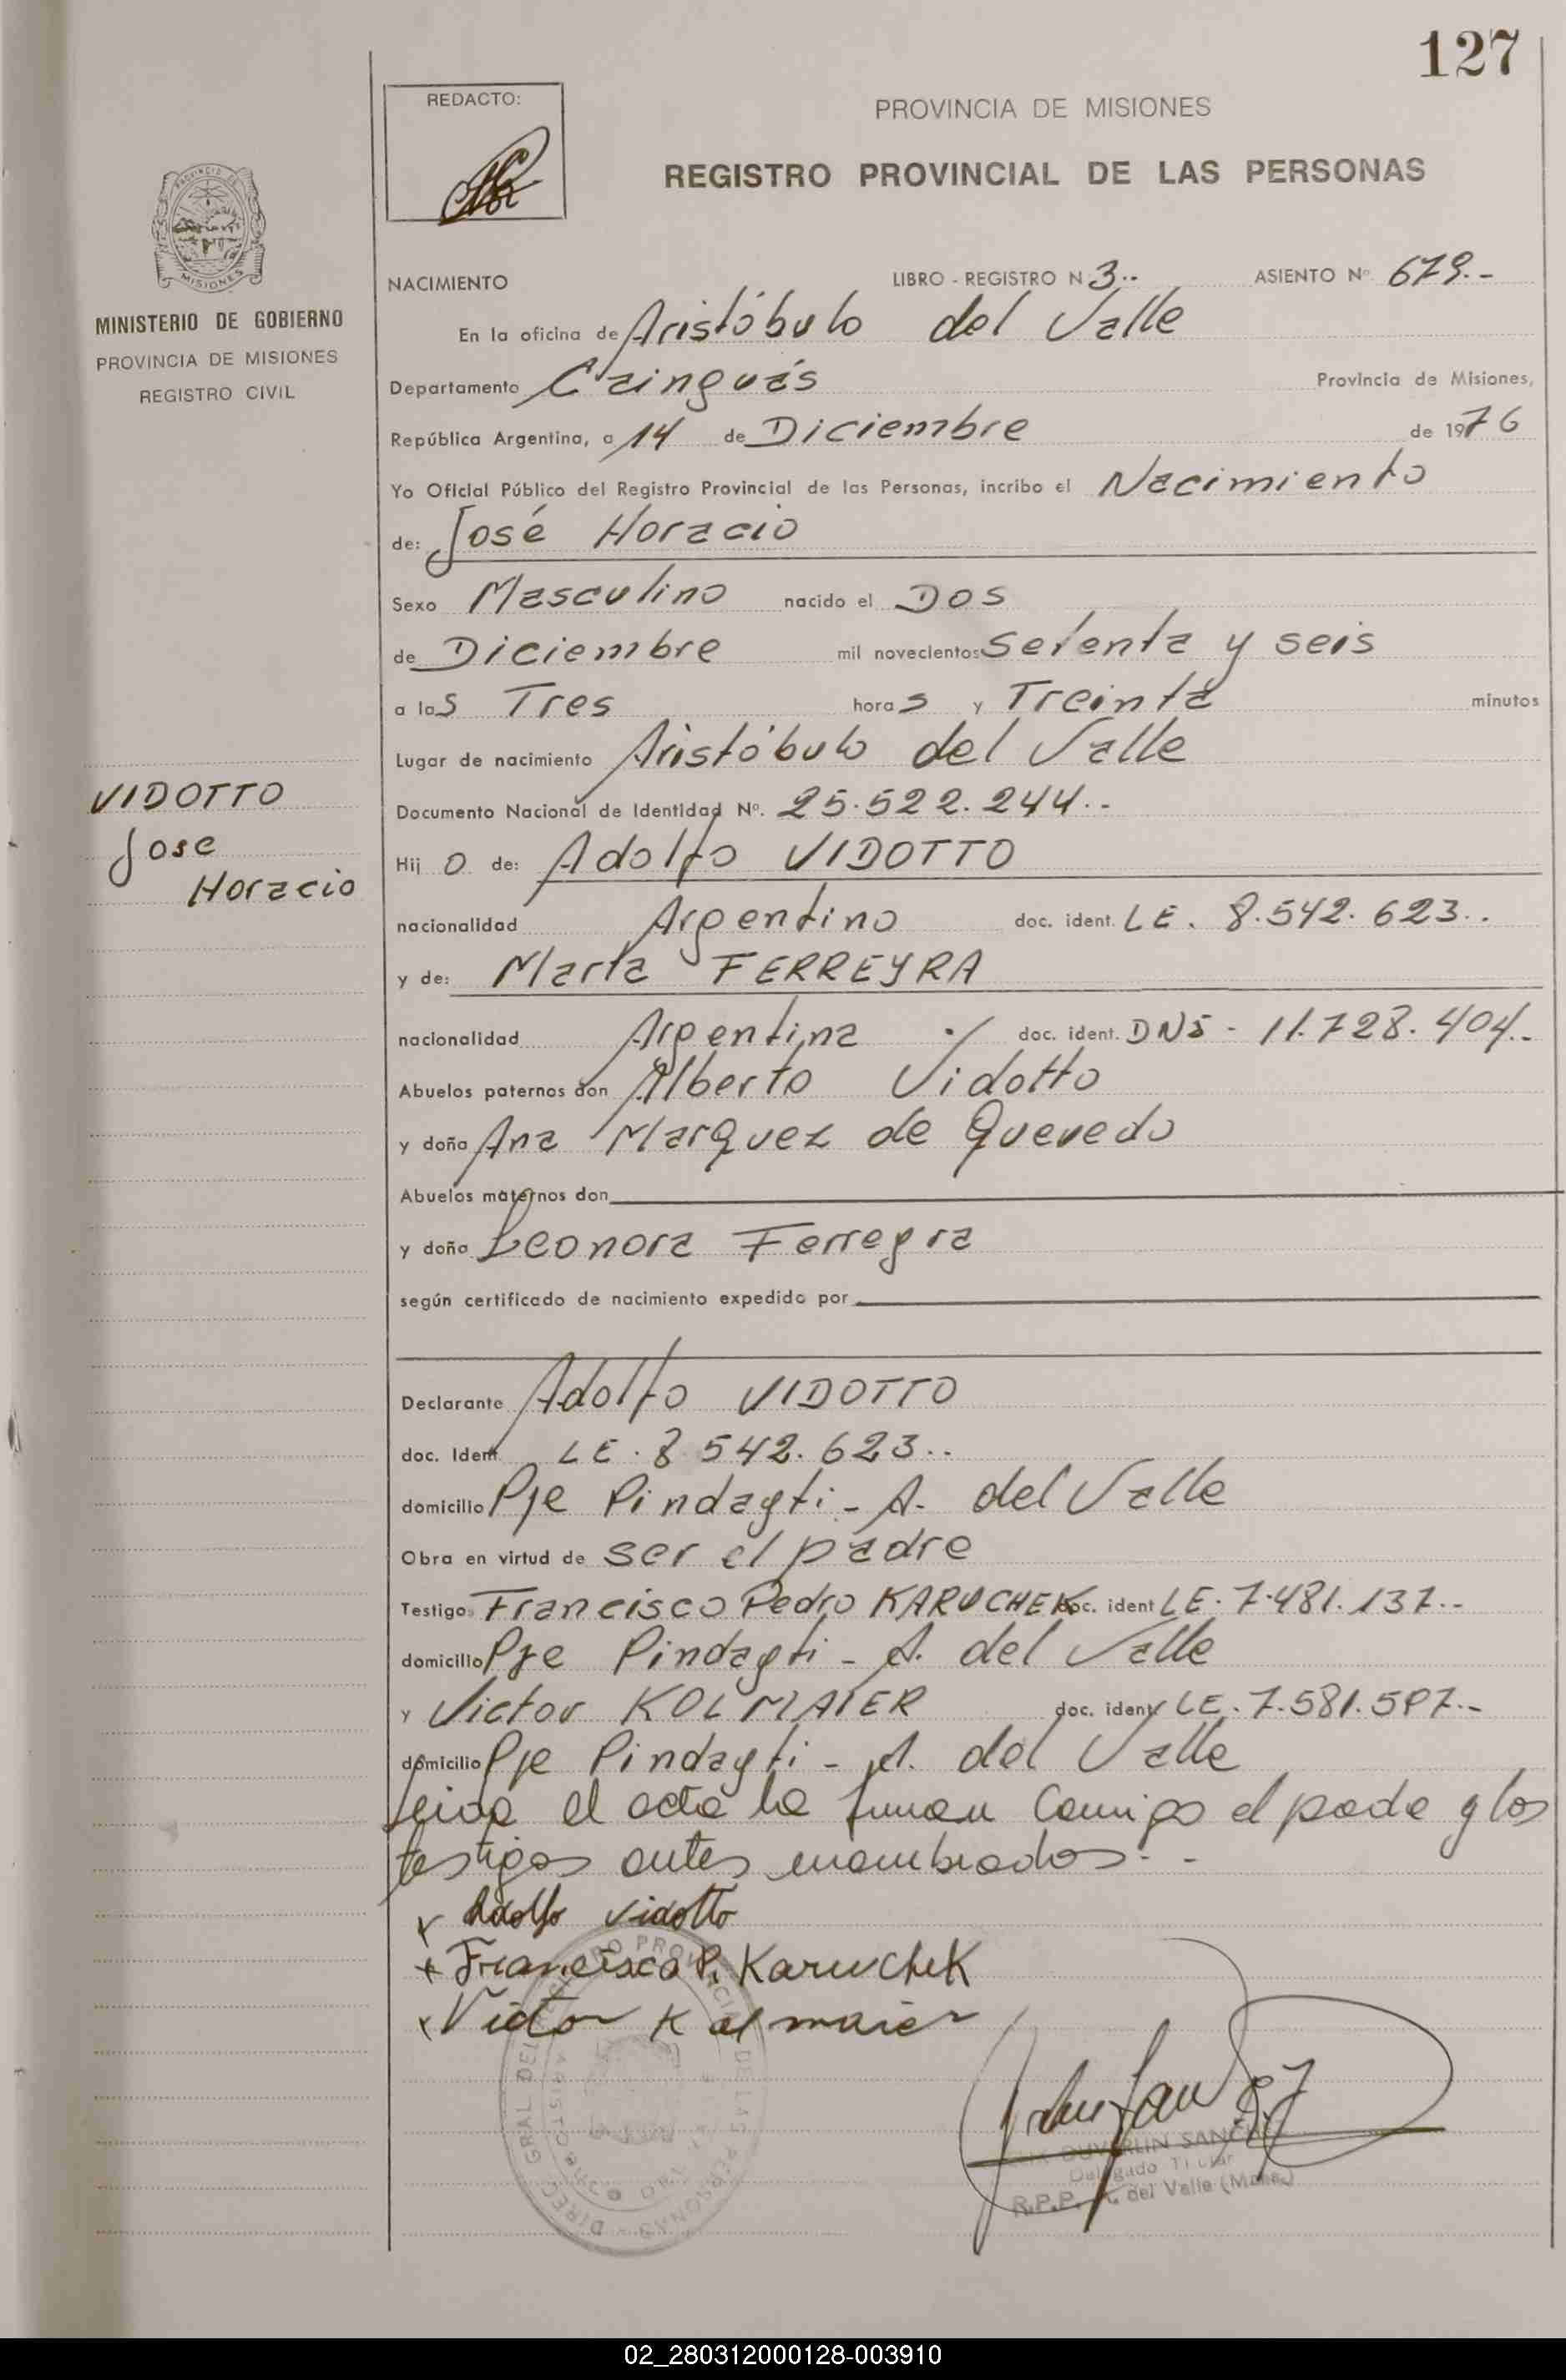 127
REDACTO:
PROVINCIA DE MISIONES
REGISTRO PROVINCIAL DE LAS PERSONAS
MISIONES
MINISTERIO DE GOBIERNO
PROVINCIA DE MISIONES
REGISTRO CIVIL
NACIMIENTO LIBRO - REGISTRO N 3.. ASIENTO Nº 679.-
En la oficina de Aristóbulo del Valle
Departamento Cainguás Provincia de Misiones,
República Argentina, a 14 de Diciembre de 1976
Yo Oficial Público del Registro Provincial de las Personas, incribo el Nacimiento
de: José Horacio
Sexo Masculino nacido el Dos
de Diciembre mil novecientos Setenta y seis
a las Tres horas y Treinta minutos
Lugar de nacimiento Aristóbulo del Valle
VIDOTTO
Jose
Horacio
Documento Nacional de Identidad Nº. 25.522.244..
Hijo de: Adolfo VIDOTTO
nacionalidad Argentino doc. ident. LE. 8.542.623..
y de: Marta FERREYRA
nacionalidad Argentina ./ doc. ident. DN5 - 11.728.404..
Abuelos paternos don Alberto Vidotto
y doña Ana Marquez de Quevedo
Abuelos maternos don
y doña Leonora Ferreyra
según certificado de nacimiento expedido por
Declarante Adolfo VIDOTTO
doc. Ident LE. 8.542.623..
domicilio Pje Pindayti - A. del Valle
Obra en virtud de ser el padre
Testigos Francisco Pedro KARUCHEK doc. ident LE. 7.481.137..
domicilio Pje Pindayti - A. del Valle
y Victor KOLMAIER doc. ident LE. 7.581.597.-
domicilio Pje Pindayti - A. del Valle
leida el acta la firman Conmigo el padre y los
testigos antes nombrados.-
x Adolfo Vidotto
x Francisco P. Karuchek
x Victor Kolmaier
DUVERLIN SANCHEZ
Delegado Titular
R.P.P. A. del Valle (Mnes.)
02_280312000128-003910